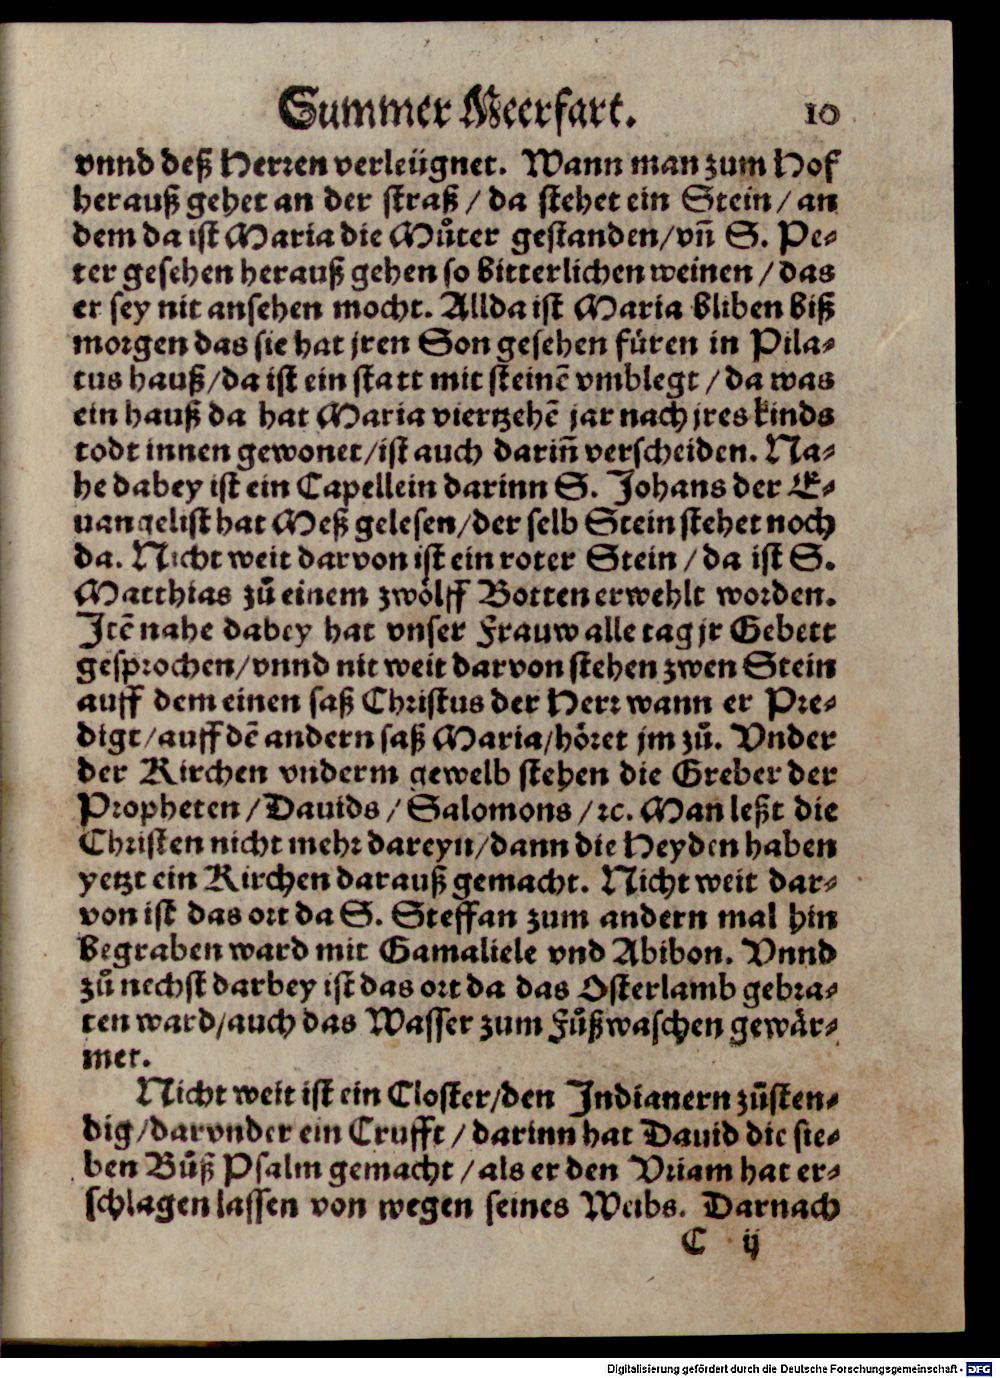 Summer Meerfart. 10
vnnd deß Herren verleügnet. Wann man zum Hof
herauß gehet an der straß / da stehet ein Stein / an
dem da ist Maria die Můter gestanden/vñ S. Pe⸗
ter gesehen herauß gehen so bitterlichen weinen / das
er sey nit ansehen mocht. Allda ist Maria bliben biß
morgen das sie hat jren Son gesehen füren in Pila⸗
tus hauß/da ist ein statt mit steinẽ vmblegt / da was
ein hauß da hat Maria viertzehẽ jar nach jres kinds
todt innen gewonet/ist auch dariñ verscheiden. Na⸗
he dabey ist ein Capellein darinn S. Johans der E⸗
uangelist hat Meß gelesen/der selb Stein stehet noch
da. Nicht weit darvon ist ein roter Stein / da ist S.
Matthias zů einem zwölff Botten erwehlt worden.
Jtẽ nahe dabey hat vnser Frauw alle tag jr Gebett
gesprochen/vnnd nit weit darvon stehen zwen Stein
auff dem einen saß Christus der Herr wann er Pre⸗
digt/auff dẽ andern saß Maria/höret jm zů. Vnder
der Kirchen vnderm gewelb stehen die Greber der
Propheten / Dauids / Salomons / ꝛc. Man leßt die
Christen nicht mehr dareyn/dann die Heyden haben
yetzt ein Kirchen darauß gemacht. Nicht weit dar⸗
von ist das ort da S. Steffan zum andern mal hin
begraben ward mit Gamaliele vnd Abibon. Vnnd
zů nechst darbey ist das ort da das Osterlamb gebra⸗
ten ward/auch das Wasser zum Fůßwaschen gewär⸗
met.
Nicht weit ist ein Closter/den Indianern zůsten⸗
dig/darvnder ein Crufft / darinn hat Dauid die sie⸗
ben Bůß Psalm gemacht / als er den Vriam hat er⸗
schlagen lassen von wegen seines Weibs. Darnach
C ij
Digitalisierung gefördert durch die Deutsche Forschungsgemeinschaft - DFG